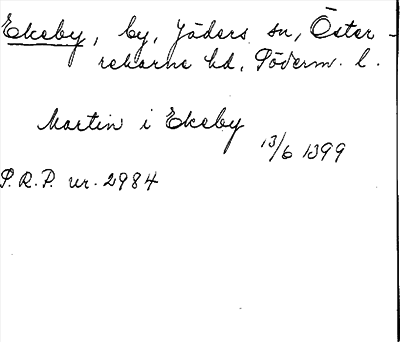 Ekeby, by, Jäders sn, Öster-
rekarne hd, Söderm. l.
Martin i Ekeby
13/6 1399
S.R.P. nr. 2984